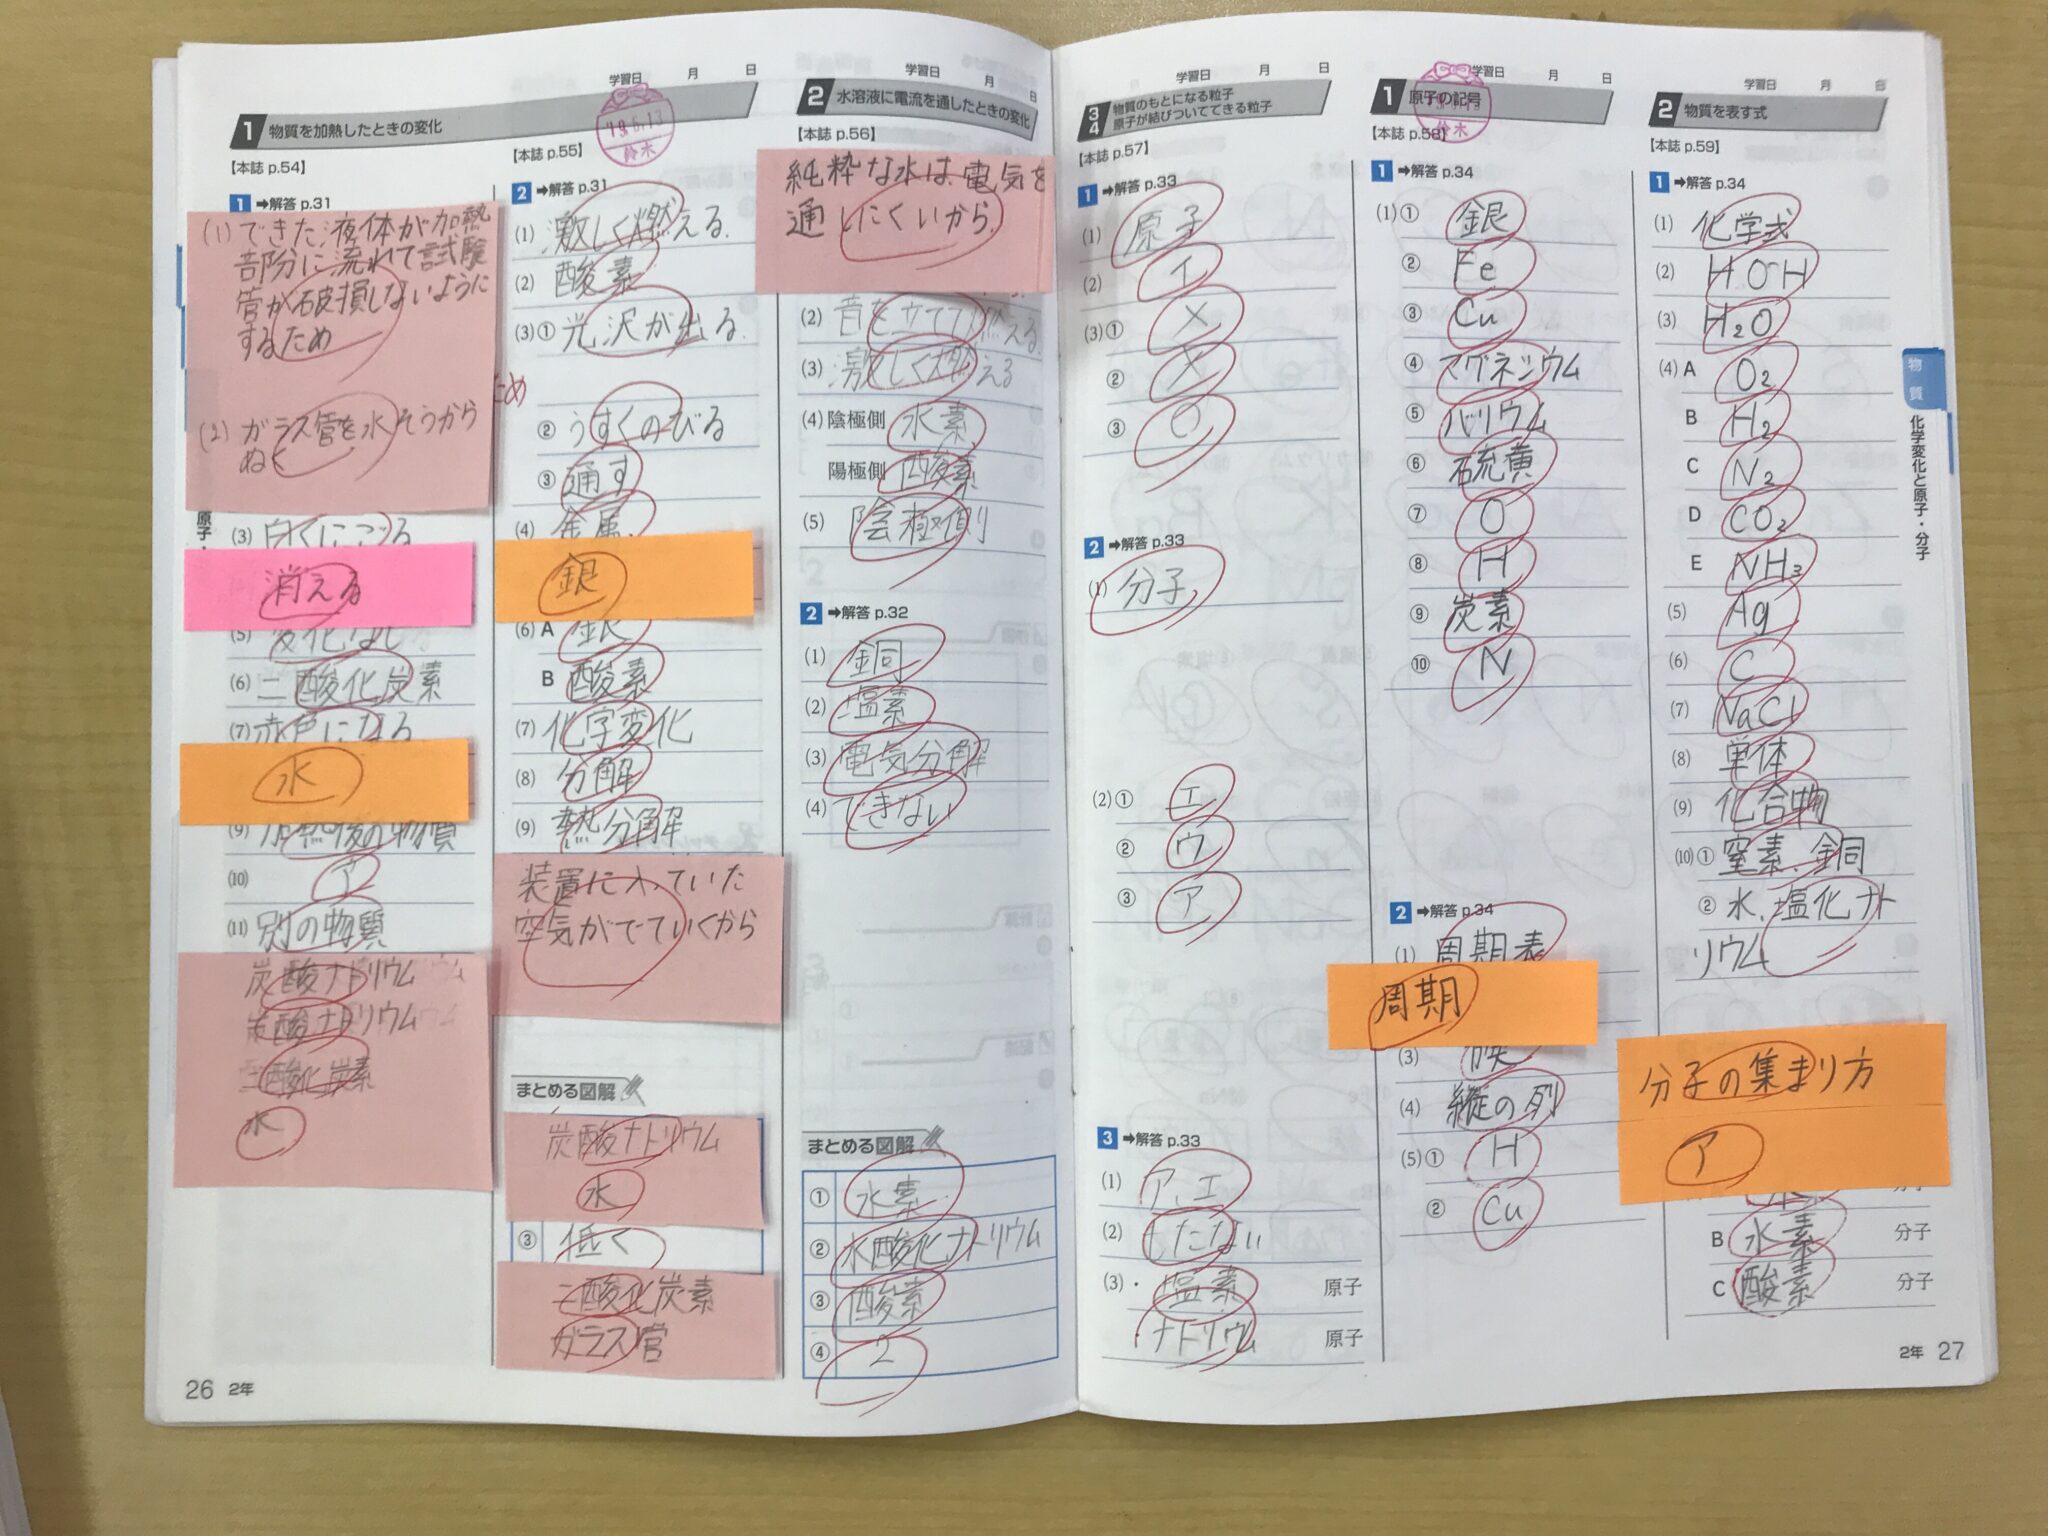 学習日 月 日
1 物質を加熱したときの変化
【本誌 p.54】
1 ➡解答 p.31
(1) できた液体が加熱
部分に流れて試験
管が破損しないように
するため
(2) ガラス管を水そうから
ぬく
(3) 白くにごる
消える
(5) 変化なし
(6) 二酸化炭素
(7) 赤色になる
水
(9) 加熱後の物質
(10) ア
(11) 別の物質
炭酸ナトリウム
炭酸ナトリウム
二酸化炭素
水
原子・
26 2年
'19.6.13
鈴木
【本誌 p.55】
2 ➡解答 p.31
(1) 激しく燃える.
(2) 酸素
(3)① 光沢が出る.
ため
② うすくのびる
③ 通す
(4) 金属
銀
(6) A 銀
B 酸素
(7) 化学変化
(8) 分解
(9) 熱分解
装置に入っていた
空気がでていくから
まとめる図解
炭酸ナトリウム
水
③ 低く
二酸化炭素
ガラス管
学習日 月 日
2 水溶液に電流を通したときの変化
【本誌 p.56】
純粋な水は、電気を
通しにくいから.
(2) 音を立てて燃える.
(3) 激しく燃える
(4) 陰極側 水素
陽極側 酸素
(5) 陰極側
2 ➡解答 p.32
(1) 銅
(2) 塩素
(3) 電気分解
(4) できない
まとめる図解
① 水素
② 水酸化ナトリウム
③ 酸素
④ 2
学習日 月 日
3 物質のもとになる粒子
4 原子が結びついてできる粒子
【本誌 p.57】
1 ➡解答 p.33
(1) 原子
(2) イ
(3)① ×
② ×
③ ○
2 ➡解答 p.33
(1) 分子
(2)① エ
② ウ
③ ア
3 ➡解答 p.33
(1) ア、エ
(2) もたない
(3)・ 塩素 原子
・ナトリウム 原子
学習日 月 日
1 原子の記号
鈴木
【本誌 p.58】
1 ➡解答 p.34
(1)① 銀
② Fe
③ Cu
④ マグネシウム
⑤ バリウム
⑥ 硫黄
⑦ O
⑧ H
⑨ 炭素
⑩ N
2 ➡解答 p.34
(1) 周期表
周期
(3) 族
(4) 縦の列
(5)① H
② Cu
学習日 月 日
2 物質を表す式
【本誌 p.59】
1 ➡解答 p.34
(1) 化学式
(2) HOH
(3) H₂O
(4) A O₂
B H₂
C N₂
D CO₂
E NH₃
(5) Ag
(6) C
(7) NaCl
(8) 単体
(9) 化合物
(10)① 窒素、銅
② 水、塩化ナト
リウム
分子の集まり方
ア
水 分子
B 水素 分子
C 酸素 分子
物質
化学変化と原子・分子
2年 27